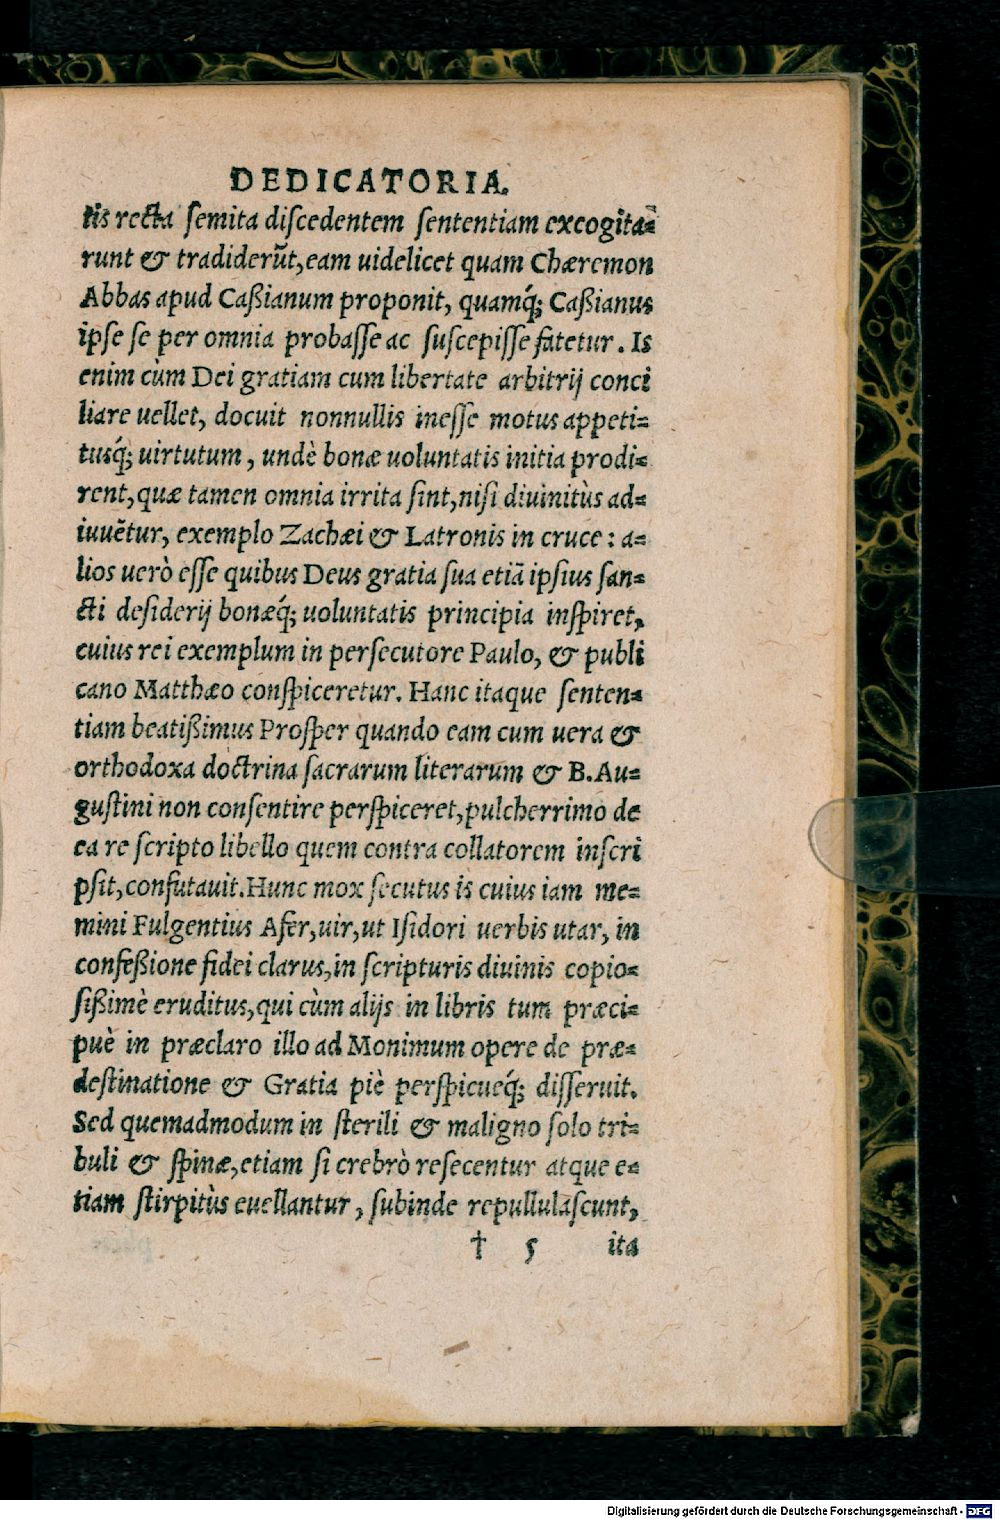 DEDICATORIA.
tis recta ſemita diſcedentem ſententiam excogita=
runt & tradiderūt, eam uidelicet quam Chæremon
Abbas apud Caßianum proponit, quamq́; Caßianus
ipſe ſe per omnia probaſſe ac ſuſcepiſſe fatetur. Is
enim cùm Dei gratiam cum libertate arbitrij conci
liare uellet, docuit nonnullis ineſſe motus appeti=
tusq́; uirtutum, undè bonæ uoluntatis initia prodi=
rent, quæ tamen omnia irrita ſint, niſi diuinitùs ad=
iuuētur, exemplo Zachæi & Latronis in cruce: a=
lios uerò eſſe quibus Deus gratia ſua etiā ipſius ſan=
cti deſiderij bonæq́; uoluntatis principia inſpiret,
cuius rei exemplum in perſecutore Paulo, & publi
cano Matthæo conſpiceretur. Hanc itaque ſenten=
tiam beatißimus Proſper quando eam cum uera &
orthodoxa doctrina ſacrarum literarum & B. Au=
guſtini non conſentire perſpiceret, pulcherrimo de
ea re ſcripto libello quem contra collatorem inſcri
pſit, confutauit. Hunc mox ſecutus is cuius iam me=
mini Fulgentius Afer, uir, ut Iſidori uerbis utar, in
confeßione fidei clarus, in ſcripturis diuinis copio=
ſißimè eruditus, qui cùm alijs in libris tum præci=
puè in præclaro illo ad Monimum opere de præ=
deſtinatione & Gratia piè perſpicueq́; diſſeruit.
Sed quemadmodum in ſterili & maligno ſolo tri=
buli & ſpinæ, etiam ſi crebrò reſecentur atque e=
tiam ſtirpitùs euellantur, ſubinde repullulaſcunt,
† 5 ita
Digitalisierung gefördert durch die Deutsche Forschungsgemeinschaft - DFG